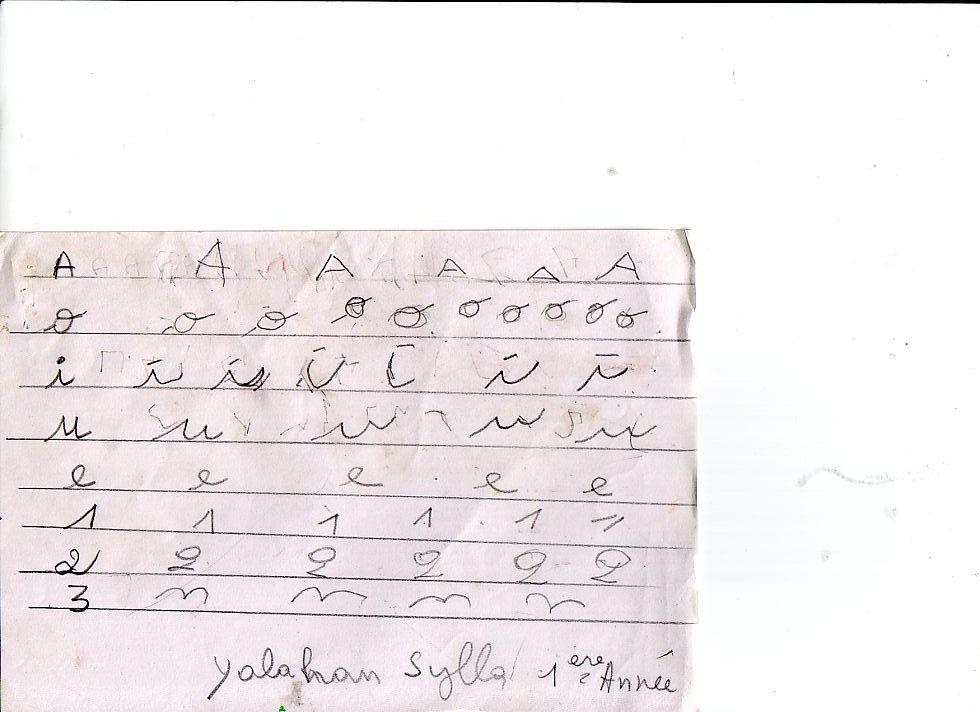 A A A A A A
o o o o o o o o o o
i i i i i i i
u u u u u
e e e e e
1 1 1 1 1 1
2 2 2 2 2 2
3 m m m m
Yalahan Sylla 1ère Année